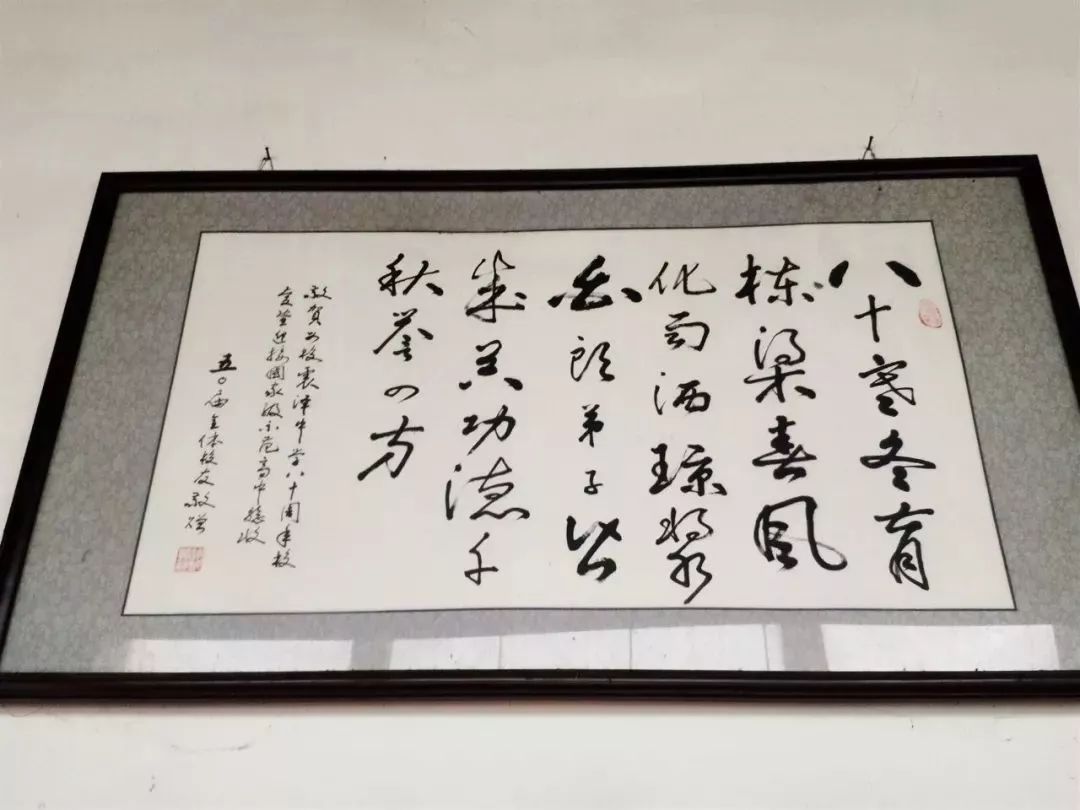 八十寒冬育
栋梁春风
化雨洒琼浆
句 弟子皆
成器功德千
秋誉四方
敬贺母校震泽中学八十周年校
庆暨迎接国家级示范高中验收
五〇届全体校友敬赠